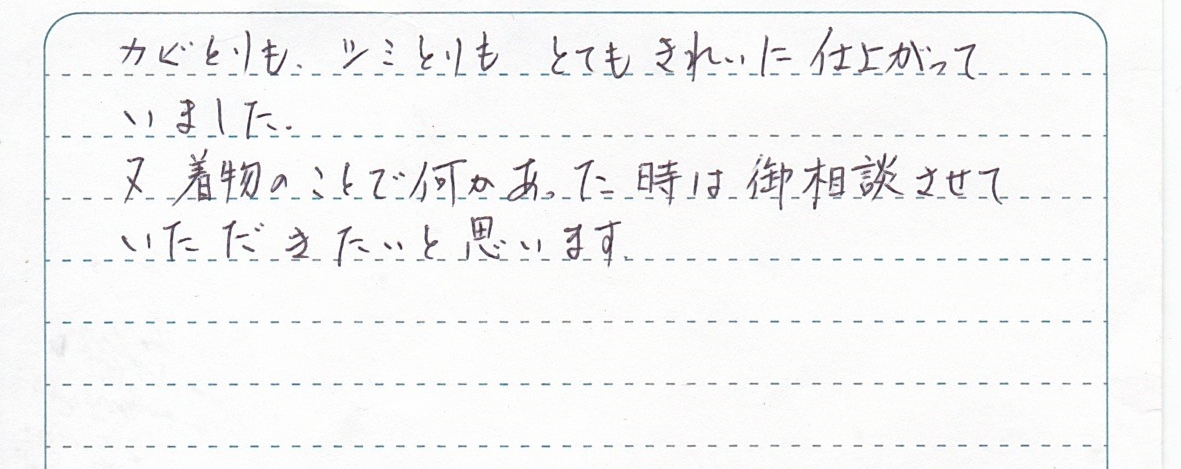 カビとりも、シミとりも とてもきれいに仕上がって
いました。
又 着物のことで何かあった時は御相談させて
いただきたいと思います。